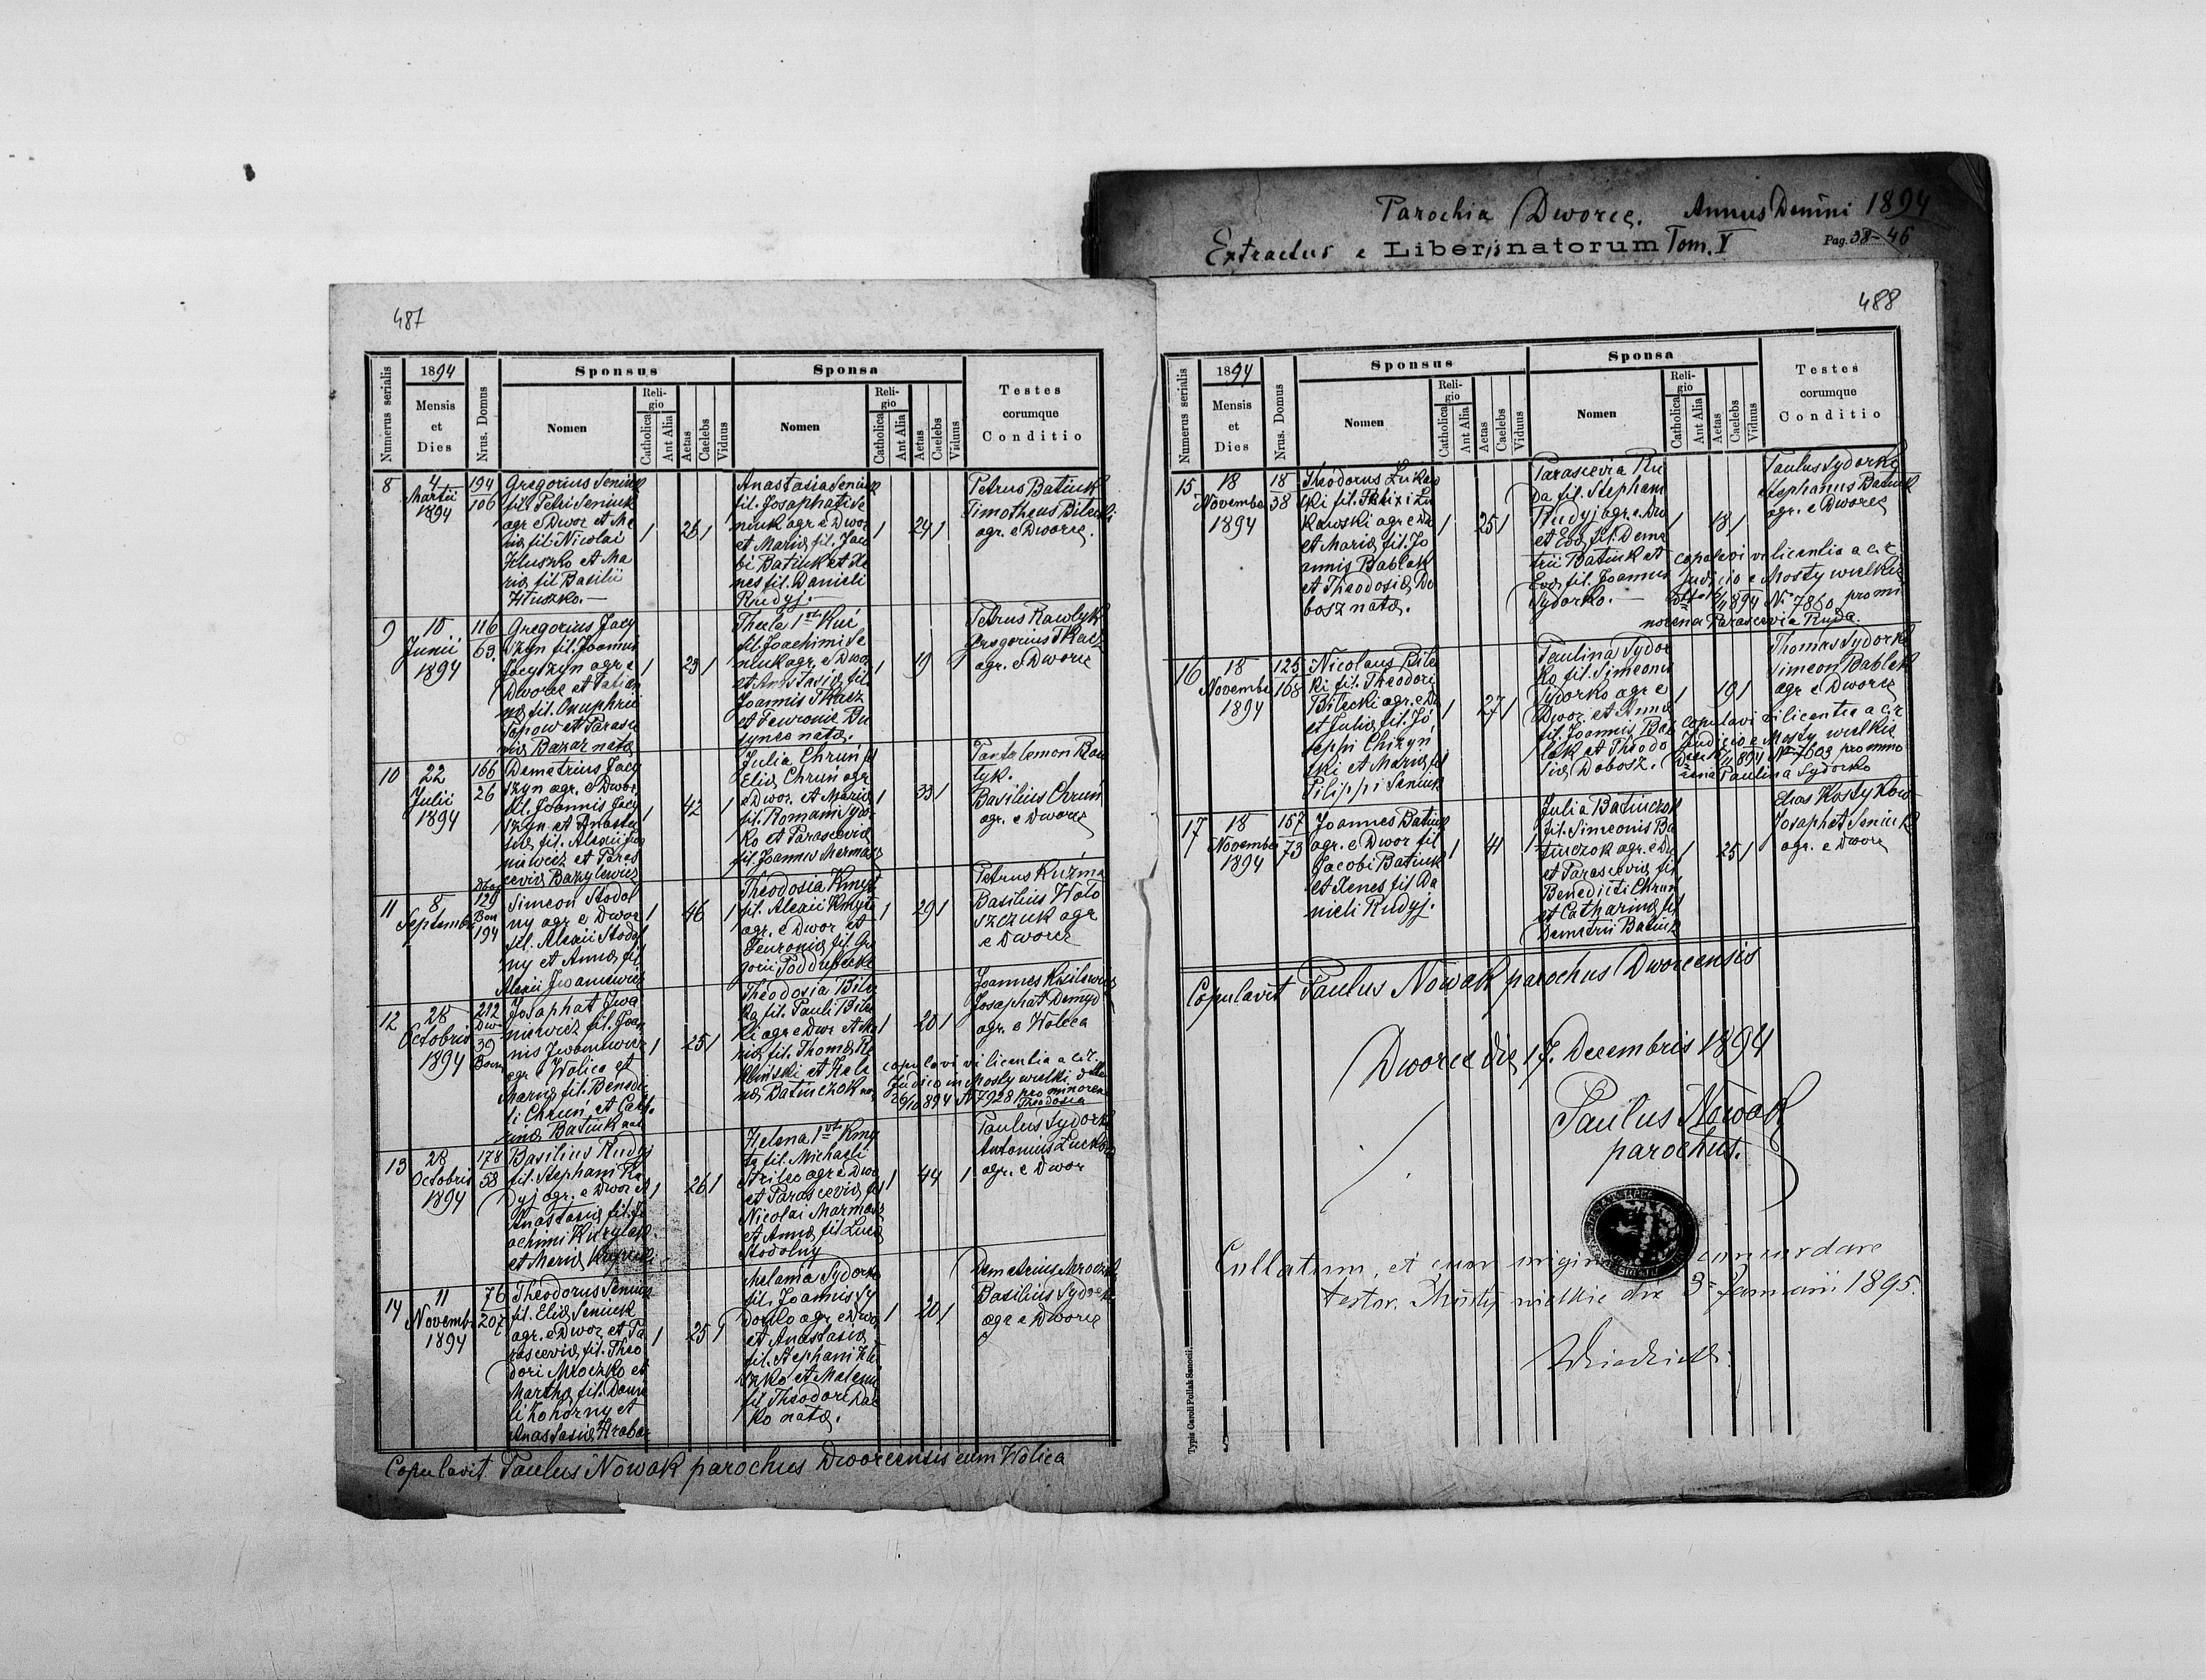 Parochia Dworce. Annus Domini 1894
Extractus e Liber natorum Tom. V Pag. 38-46
487
Numerus serialis
1894
Mensis
et
Dies
Nrus. Domus
Sponsus
Nomen
Reli-
gio
Catholica
Aut Alia
Aetas
Caelebs
Viduus
Sponsa
Nomen
Reli-
gio
Catholica
Aut Alia
Aetas
Caelebs
Viduus
Testes
eorumque
Conditio
8
4
Martii
1894
194
106
Gregorius Seniuk
fil. Petri Seniuk
agr e Dwor et Ma
ria fil. Nicolai
Hluszko et Ma
ria fil Basilii
Hluszko.—
1 26 1
Anastasia Seniuk
fil. Josaphati Se
niuk agr e Dwor
et Maria fil. Jaco
bi Batiuk et Xe
nes fil. Danieli
Rudyj.—
1 24 1
Petrus Batiuk
Timotheus Bilecki
agr. e Dworce.
9
10
Junii
1894
116
69.
Gregorius Jacy
szyn fil. Joannis
Jacyszyn agr e
Dworce et Tatian
na fil. Onuphrii
Popow et Parasce
via Bazar nata
1 23 1
Thecla 1 voto Kuć
fil. Joachimi Se
niuk agr. e Dwor
et Anastasia fil
Joannis Tkacz
et Fewronie
nata.
1 19 1
Petrus Kawlyk
Gregorius Tkacz
agr. e Dworce
10
22
Julii
1894
166
26
Demetrius Jacy
szyn agr. e Dwor.
fil. Joannis Jacy
szyn et Anasta
sia fil. Alexii Iwa
niewicz et Paras
cevia Bazylewicz
1 42 1
Julia Chruń fil
Elia Chruń agr
e Dwor. et Maria
fil. Romani
ko et Parascevia
fil. Joannis Marmasz
1 33 1
Pantalemon Baw
lyk.
Basilius Chruń
agr. e Dworce
11
8
Septembr
129
194
Simeon Stodol
ny agr e Dwor
fil. Alexii Stodol
ny et Anna fil
Alexii Iwaniewicz
1 46 1
Theodosia Kmyt
fil. Alexii Kmyta
agr. e Dwor et
Feuronia fil. Gre
gorii Poddubecki
1 29 1
Petrus Kuzma
Basilius Woło
szczuk agr
e Dworce
12
28
Octobris
1894
212
Dwor
39
Josaphat Iwa
niewicz fil. Joan
nis Iwaniewicz
agr. e Wolica et
Maria fil. Benedic
ti Chruń et Catha
rina Batiuk nat
1 25 1
Theodosia Bilec
ka fil. Pauli Bilec
ki agr e Dwor et Ma
ria fil. Thoma Re
kliński et Hele
na Batiuczok na
1 20 1
Joannes
Josaphat Demyd
agr. e Wolica
copulavi vi licentia a c. r.
Judicio in Mosty wielki ddto
26/10 894 N 7928 pro minorena
Theodosia
13
28
Octobris
1894
178
58
Basilius Rudyj
fil. Stephani Ru
dyj agr. e Dwor et
Anastasia fil. Jo
achimi Kurylak
et Maria
1 26 1
Helena 1 voto Kmy
ta fil. Michaeli
Strilec agr e Dwo
et Parascevia fil
Nicolai Marmasz
et Anna fil Luca
Stodolny
1 44 1
Paulus Sydorko
Antonius
agr. e Dwor
14
11
Novembr
1894
76
207
Theodorus Seniuk
fil. Elia Seniuk
agr. e Dwor. et Pa
rascevia fil. Theo
dori Mroczko et
Martha fil. Dani
li Zohorny et
Anastasia Hrabar
1 25 1
Melania Sydorko
fil. Joannis Sy
dorko agr. e Dwo
et Anastasia
fil. Stephani Hlu
szko et Melania
fil. Theodori Dac
ko nata.
1 20 1
Demetrius Mroczko
Basilius Sydorko
agr e Dworce
Copulavit Paulus Nowak parochus Dworcensis cum Wolica
488
Numerus serialis
1894
Mensis
et
Dies
Nrus. Domus
Sponsus
Nomen
Reli-
gio
Catholica
Aut Alia
Aetas
Caelebs
Viduus
Sponsa
Nomen
Reli-
gio
Catholica
Aut Alia
Aetas
Caelebs
Viduus
Testes
eorumque
Conditio
15
18
Novembr
1894
18
38
Theodorus Łukaw
ski fil. Felixi Łu
kawski agr e Dw
et Maria fil. Jo
annis Bablak
et Theodosia Do
bosz nata.
1 25 1
Parascevia Ru
da fil. Stephani
Rudyj agr. e Dw
et Eva fil. Deme
trii Batiuk et
Eva fil. Joannis
Sydorko.—
1 18 1
Paulus Sydorko
Stephanus Batiuk
agr. e Dworce
copulavi vi licentia a c. r.
Judicio e Mosty wielkie
1894 N 7860 pro mi
norena Parascevia Ruda.
16
18
Novembr
1894
125
168
Nicolaus Bilec
ki fil. Theodori
Bilecki agr. e Dw
et Julia fil. Jo
seppi Chizyń
ski et Maria fil
Pilippi Seniuk
1 27 1
Paulina Sydor
ko fil. Simeonis
Sydorko agr e
Dwor. et Anna
fil. Joannis Bab
lak et Theodo
sia Dobosz.
1 19 1
Thomas Sydorko
Simeon Bablak
agr e Dworce
copulavi vi licentia a c. r.
Judicio e Mosty wielkie
1894 N 7603 pro mino
rena Paulina Sydorko
17
18
Novembr
1894
157
73
Joannes Batiuk
agr. e Dwor fil
Jacobi Batiuk
et Xenes fil Da
nieli Rudyj.
1 41 1
Julia Batiuczok
fil. Simeonis Ba
tiuczok agr. e Dw
et Parascevia fil
Benedicti Chruń
et Catharina fil
Demetrii Batiuk
1 25 1
Elias Kostykow
Josaphat Seniuk
agr. e Dworce
Copulavit Paulus Nowak parochus Dworcensis
Dworce die 17. Decembris 1894
Paulus Nowak
parochus.
Collatum, et cum origin concordare
testor. Mosty wielkie die 3 Januarii 1895.
Typis Caroli Pollak Sanocii.